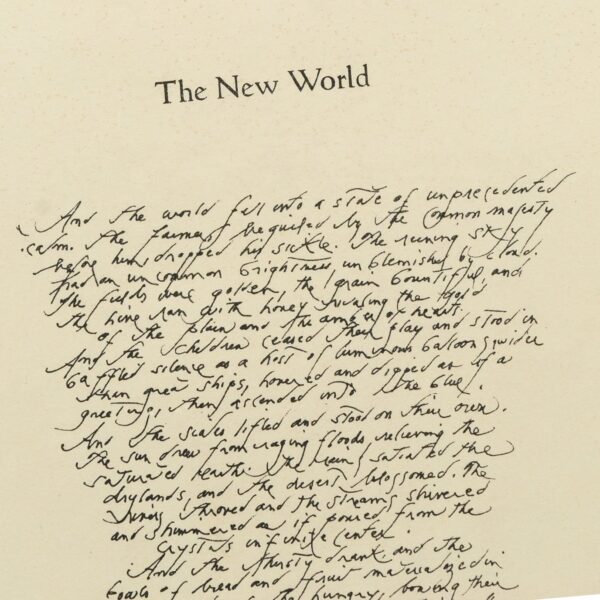 The New World
And the world fell into a state of unprecedented
calm. The farmer, beguiled by the common majesty
before him, dropped his sickle. The evening sky
had an uncommon brightness, unblemished by cloud.
The fields were golden, the grain bountiful, and
the hive ran with honey rivaling the gold
of the plain and the amber of heart.
And the children ceased their play and stood in
baffled silence as a host of luminous balloons, wider
than great ships, hovered and dipped as if a
greeting, then ascended into the blue.
And the scales lifted and stood on their own.
The sun drew from raging floods, relieving the
saturated earth. The rains satiated the
drylands, and the desert blossomed. The
rivers throved and the streams shivered
and shimmered as if poured from the
crystals infinite center.
And the thirsty drank and the
bowls of bread and fruit materialized in
of the hungry, bowing their